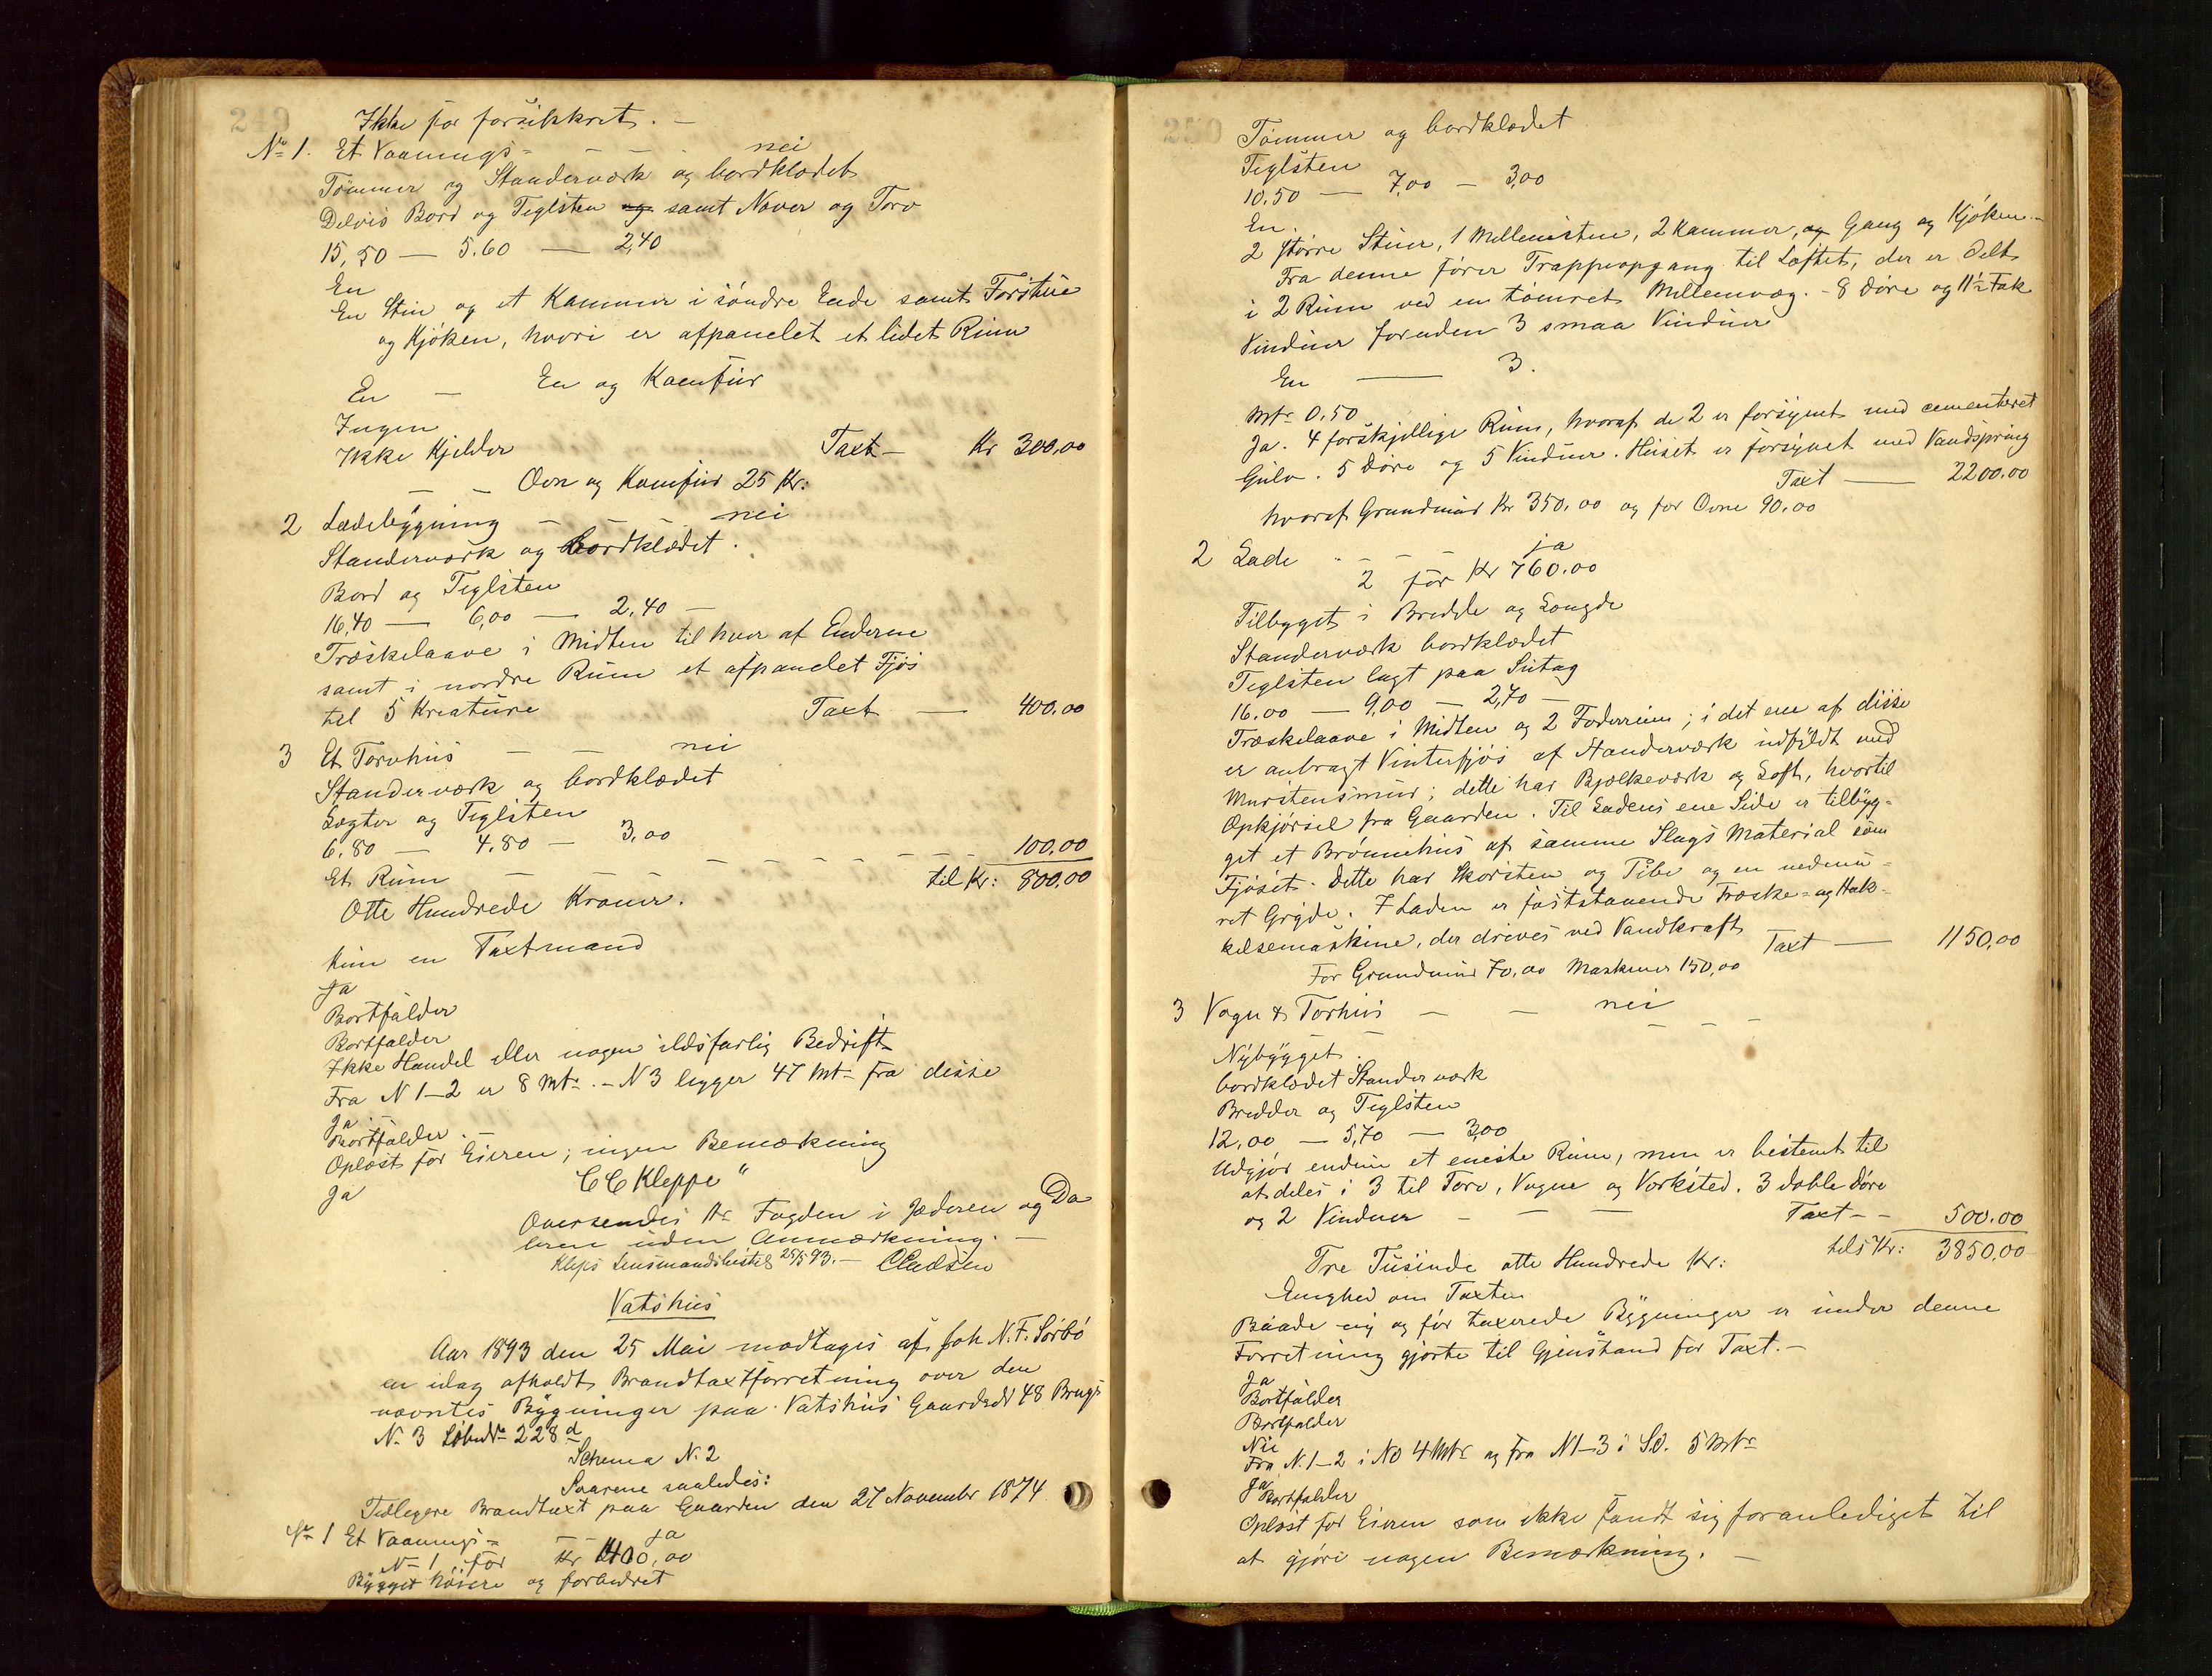 249
Ikke før forsikkret. —
No 1. Et Vaanings- — — — nei
Tømmer og Standerværk og bordklædet
Delvis Bord og Teglsten og samt Næver og Torv
15,50 — 5.60 — 2,40
En
En Stue og et Kammer i søndre Ende samt Forstue
og Kjøken, hvori er afpanelet et lidet Rum
En — En og Komfur
Ingen
Ikke Kjelder Taxt — Kr 300,00
— — Ovn og Komfur 25 Kr:
2 Ladebygning — — — nei
Standerværk og bordklædet.
Bord og Teglsten
16,40 — 6,00 — 2,40 —
Træskelaave i Midten til hver af Enderne
samt i nordre Rum et afpanelet Fjøs
til 5 Kreature Taxt — 400,00
3 Et Torvhus — — nei
Standerværk og bordklædet
Lægter og Teglsten
6,80 — 4,80 — 3,00
Et Rum — — — — — — — 100,00
til Kr: 800,00
Otte Hundrede Kroner.
Kun en Taxtmand
Ja
Bortfalder
Bortfalder
Ikke Handel eller nogen ildsfarlig Bedrift
Fra N 1-2 er 8 Mtr. - N 3 ligger 47 Mt- fra disse
Ja
Bortfalder.
Oplæst for Eieren; ingen Bemærkning
Ja
C C Kleppe"
Oversendes Hr Fogden i Jæderen og Da
lerne uden Anmærkning. —
Kleps Lensmandsbestil 25/5 93. —
Vatshus
Aar 1893 den 25 Mai modtages af Joh N. F. Sørbø
en idag afholdt Brandtaxtforretning over den
nævntes Bygninger paa Vatshus Gaardsn 48 Brugs
N. 3 Løbenr 228 d
Schema N. 2
Svarene saaledes:
Tidligere Brandtaxt paa Gaarden den 27 November 1874
No 1 Et Vaanings- — — ja
N- 1 for Kr 1400,00
Bygget høiere og forbedret
250
Tømmer og bordklædet
Teglsten
10,50 — 7,00 — 3,00
En.
2 større Stuer, 1 Mellemstue, 2 Kammer, og Gang og Kjøken. —
Fra denne fører Trappeopgang til Loftet, der er delt
i 2 Rum ved en tømret Mellemvæg. - 8 Døre og 11½ Fak
Vinduer foruden 3 smaa Vinduer
En — 3.
Mtr 0,50
Ja. 4 forskjellige Rum, hvoraf de 2 er forsynt med cementeret
Gulv. 5 Døre og 5 Vinduer. Huset er forsynet med Vandspring
Taxt — 2200,00
hvoraf Grundmur Kr 350,00 og for Ovne 90,00
2 Lade - — — — ja
2 før Kr 760,00
Tilbygget i Bredde og Længde
Standerværk bordklædet
Teglsten lagt paa Sutag
16.00 — 9,00 — 2,70 —
Træskelaave i Midten og 2 Foderrum; i det ene af disse
er anbragt Vinterfjøs af Standerværk udfyldt med
Murstensmur; dette har Bjælkeværk og Loft, hvortil
Opkjørsel fra Gaarden. Til Ladens ene Side er tilbyg-
get et Brønnehus af samme Slags Material som
Fjøset. Dette har Skorsten og Pibe og en nedmu-
ret Gryde. I Laden er faststaaende Træske- og Hak-
kelsemaskine, der drives ved Vandkraft
Taxt — 1150,00
For Grundmur 70,00 Maskiner 150,00
3 Vogn & Torhus — — nei
— — — — —
Nybygget.
bordklædet Standerværk
Bredder og Teglsten
12,00 — 5,70 — 3,00
Udgjør endnu et eneste Rum, men er bestemt til
at deles i 3 til Torv, Vogne og Verksted. 3 doble Døre
og 2 Vinduer — — — Taxt - - 500.00
tils Kr: 3850,00
Tre Tusinde otte Hundrede Kr:
Enighed om Taxten
Baade ny og før taxerede Bygninger er under denne
Forretning gjorte til Gjenstand for Taxt. —
Ja
Bortfalder
Bortfalder
Nei
Fra N. 1-2 i NO 4 Mtr og Fra N 1-3 i SO. 5 Mtr
Ja
Bortfalder
Oplæst for Eieren som ikke fandt sig foranlediget til
at gjøre nogen Bemærkning. —